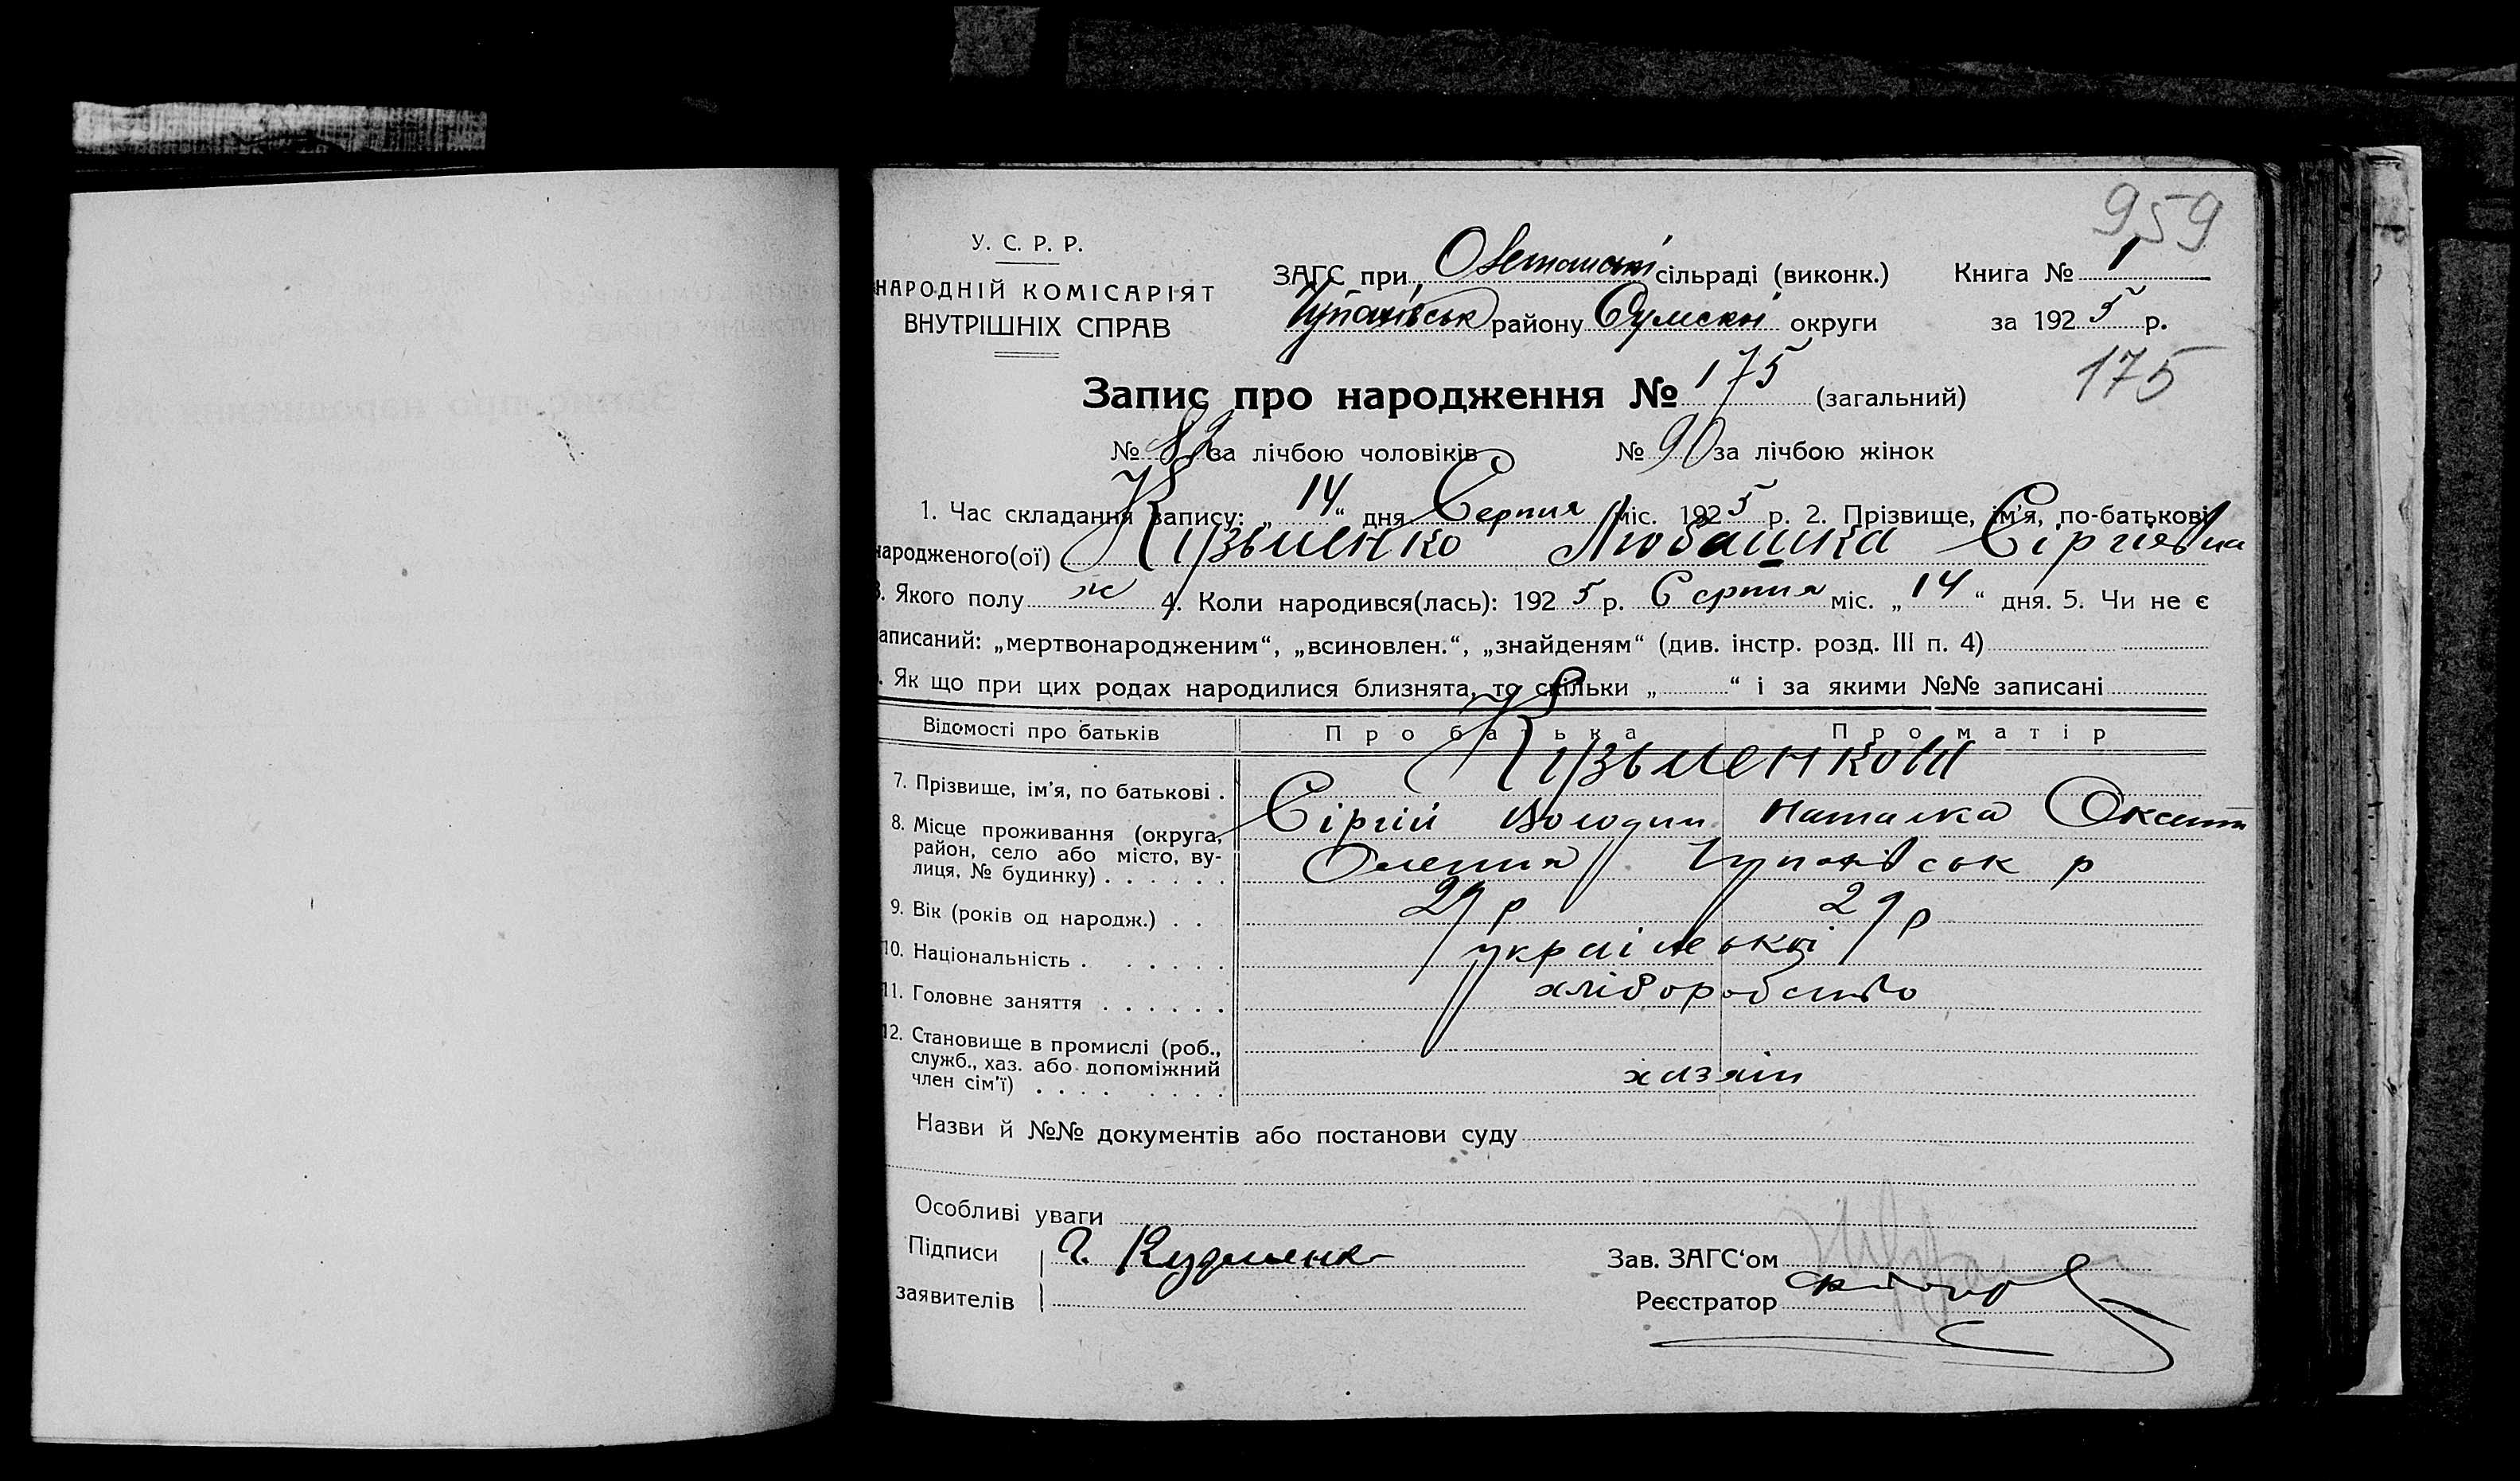 959
У. С. Р. Р.
НАРОДНІЙ КОМІСАРІЯТ
ВНУТРІШНІХ СПРАВ
ЗАГС при сільраді (виконк.) Книга № 1
району Сумськ округи за 1925 р.
175
Запис про народження № 175 (загальний)
№ за лічбою чоловіків № 90 за лічбою жінок
1. Час складання запису: „14“ дня Серпня міс. 1925 р. 2. Прізвище, ім'я, по-батькові
народженого(ої) Кузьменко Любашка Сіргієвна
3. Якого полу ж 4. Коли народився(лась): 1925 р. Серпня міс. „14“ дня. 5. Чи не є
записаний: „мертвонародженим“, „всиновлен.“, „знайденям“ (див. інстр. розд. III п. 4)
. Як що при цих родах народилися близнята, то скільки „ “ і за якими №№ записані
Відомості про батьків Про батька Про матір
7. Прізвище, ім'я, по батькові . Кузьменкови
Сіргій Володим Наталка
8. Місце проживання (округа, район, село або місто, вулиця, № будинку) . . . . . . р
9. Вік (років од народж.) . . 29 р 29 р
10. Національність . . . . . . українські
11. Головне заняття . . . . . . хліборобство
12. Становище в промислі (роб., служб., хаз. або допоміжний член сім'ї) . . . . . . . . хазяін
Назви й №№ документів або постанови суду
Особливі уваги
Підписи Кузменк
заявителів
Зав. ЗАГС'ом
Реєстратор